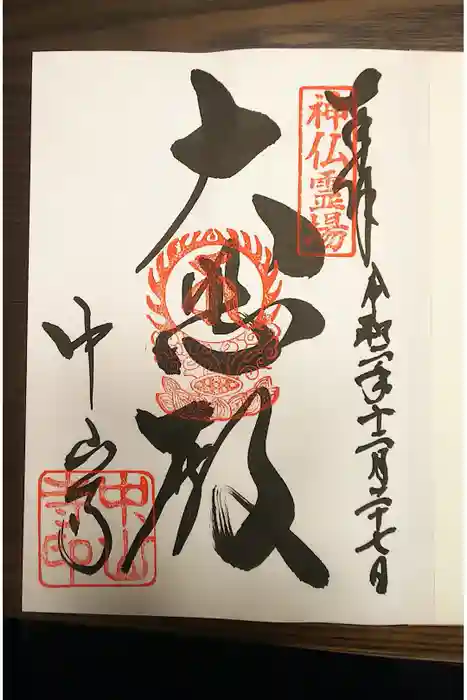 奉拝
神仏霊場
令和二年十二月二十七日
大悲殿
中山寺
中山
寺印